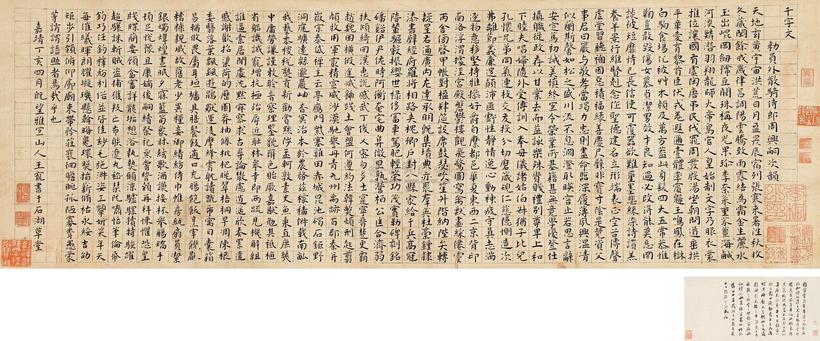 千字文
敕員外散騎侍郎周興嗣次韻
天地玄黃宇宙洪荒日月盈昃辰宿列張寒來暑往秋收
冬藏閏餘成歲律呂調陽雲騰致雨露結為霜金生麗水
玉出崑岡劍號巨闕珠稱夜光菓珍李柰菜重芥薑海鹹
河淡鱗潛羽翔龍師火帝鳥官人皇始制文字乃服衣裳
推位讓國有虞陶唐弔民伐罪周發殷湯坐朝問道垂拱
平章愛育黎首臣伏戎羌遐邇壹體率賓歸王鳴鳳在樹
白駒食場化被草木賴及萬方蓋此身髮四大五常恭惟
鞠養豈敢毀傷女慕貞潔男效才良知過必改得能莫忘罔
談彼短靡恃己長信使可覆器欲難量墨悲絲染詩讚羔
羊景行維賢剋念作聖德建名立形端表正空谷傳聲
虛堂習聽禍因惡積福緣善慶尺璧非寶寸陰是競資父
事君曰嚴與敬孝當竭力忠則盡命臨深履薄夙興溫凊
似蘭斯馨如松之盛川流不息淵澄取映容止若思言辭
安定篤初誠美慎終宜令榮業所基籍甚無竟學優登仕
攝職從政存以甘棠去而益詠樂殊貴賤禮別尊卑上和
下睦夫唱婦隨外受傅訓入奉母儀諸姑伯叔猶子比兒
孔懷兄弟同氣連枝交友投分切磨箴規仁慈隱惻造次
弗離節義廉退顛沛匪虧性靜情逸心動神疲守真志滿
逐物意移堅持雅操好爵自縻都邑華夏東西二京背邙
面洛浮渭據涇宮殿盤鬱樓觀飛驚圖寫禽獸畫綵仙靈
丙舍傍啟甲帳對楹肆筵設席鼓瑟吹笙升階納陛弁轉
疑星右通廣內左達承明既集墳典亦聚群英杜稾鍾隸
漆書壁經府羅將相路俠槐卿戶封八縣家給千兵高冠
陪輦驅轂振纓世祿侈富車駕肥輕策功茂實勒碑刻銘
磻溪伊尹佐時阿衡奄宅曲阜微旦孰營桓公匡合濟弱
扶傾綺回漢惠說感武丁俊乂密勿多士寔寧晉楚更霸
趙魏困橫假途滅虢踐土會盟何遵約法韓弊煩刑起翦
頗牧用軍最精宣威沙漠馳譽丹青九州禹跡百郡秦并
嶽宗泰岱禪主云亭鴈門紫塞雞田赤城昆池碣石鉅野
洞庭曠遠緜邈巖岫杳冥治本於農務茲稼穡俶載南畝
我藝黍稷稅熟貢新勸賞黜陟孟軻敦素史魚秉直庶幾
中庸勞謙謹敕聆音察理鑒貌辨色貽厥嘉猷勉其祗植
省躬譏誡寵增抗極殆辱近恥林皋幸即兩疏見機解組
誰逼索居閑處沉默寂寥求古尋論散慮逍遙欣奏累遣
慼謝歡招渠荷的歷園莽抽條枇杷晚翠梧桐早凋陳根
委翳落葉飄颻遊鵾獨運凌摩絳霄耽讀翫市寓目囊箱
易輶攸畏屬耳垣牆具膳飡飯適口充腸飽飫烹宰飢厭
糟糠親戚故舊老少異糧妾御績紡侍巾帷房紈扇圓潔
銀燭煒煌晝眠夕寐藍筍象床絃歌酒讌接杯舉觴矯手
頓足悅豫且康嫡後嗣續祭祀烝嘗稽顙再拜悚懼恐惶
牋牒簡要顧答審詳骸垢想浴執熱願涼驢騾犢特駭躍
超驤誅斬賊盜捕獲叛亡布射遼丸嵇琴阮嘯恬筆倫紙
鈞巧任釣釋紛利俗並皆佳妙毛施淑姿工顰妍笑年矢
每催曦暉朗曜璇璣懸斡晦魄環照指薪修祜永綏吉劭
矩步引領俯仰廊廟束帶矜莊徘徊瞻眺孤陋寡聞愚蒙
等誚謂語助者焉哉乎也
嘉靖丁亥四月既望雅宜山人王寵書于石湖草堂